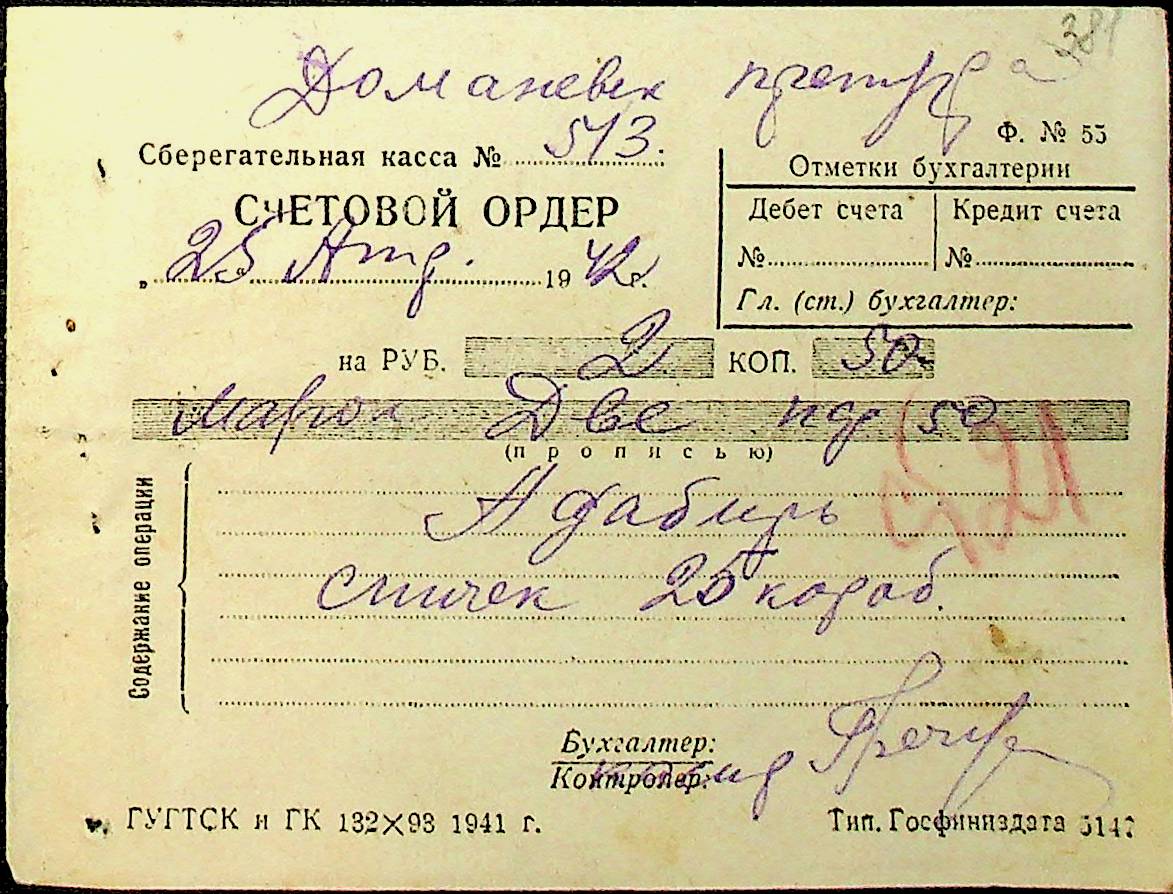 381
Доманевск претура
Ф. № 55
Сберегательная касса № 513.
Отметки бухгалтерии
СЧЕТОВОЙ ОРДЕР
Дебет счета Кредит счета
„25" 1942г.
№ №
Гл. (ст.) бухгалтер:
на РУБ. 2 КОП. 50
марок Две пф 50
(прописью)
521
Содержание операции
спичек 25 короб.
Бухгалтер:
Контролер:
ГУГТСК и ГК 132×93 1941 г.
Тип. Госфиниздата 5147